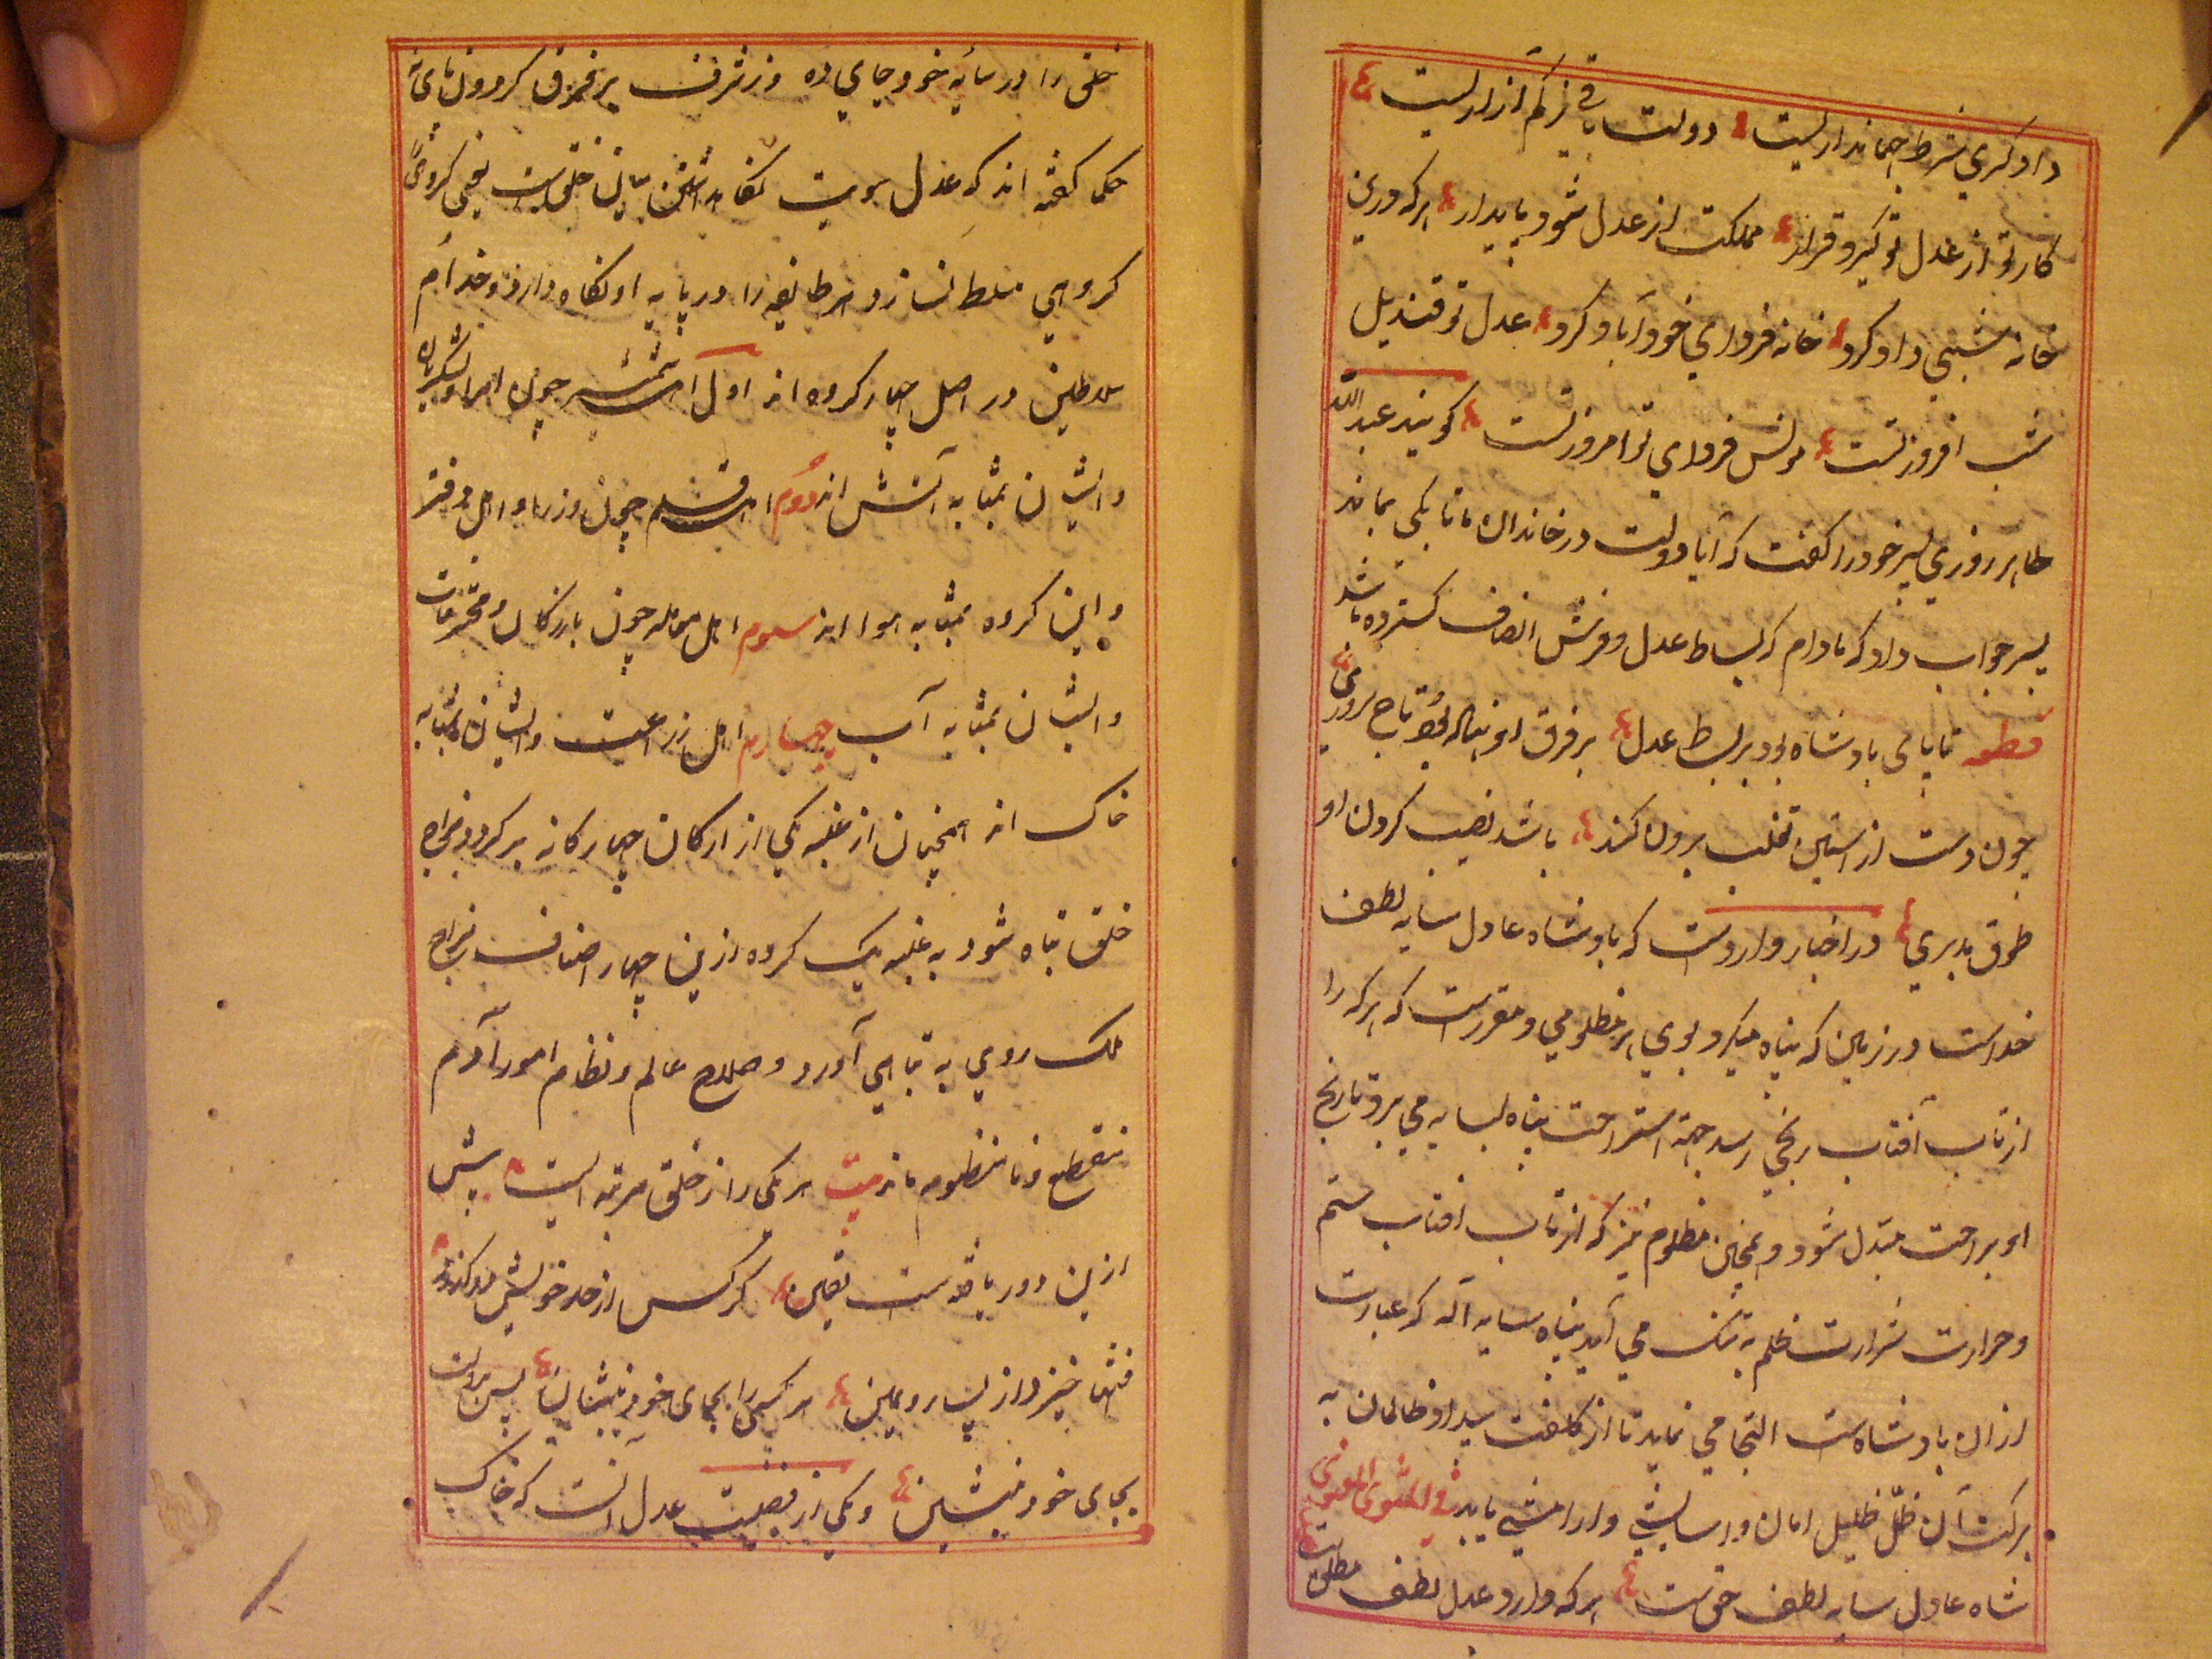 دادگری شرط جهانداریست دولت باقی ز کم آزاریست
کار تو از عدل تو گیرد قرار مملکت از عدل شود پایدار هر که درین
خانه شبی داد کرد خانه فردای خود آباد کرد عدل تو قندیل
شب افروز تست مونس فردای تو امروز تست گویند عبدالله
طاهر روزی پسر خود را گفت که آیا دولت در خاندان ما تا بکی بماند
پسر جواب داد که مادام که بساط عدل و فرش انصاف گسترده باشد
قطعه تا پای پادشاه بود بر بساط عدل بر فرق او نهاده بود تاج سروری
چون دست ز استین تغلب برون کند باشد نصیب گردن او
طوق مدبری در اخبار واردست که پادشاه عادل سایه لطف
خداست در زمین که پناه میگیرد بوی هر مظلومی و مقررست که هر که را
از تاب آفتاب رنجی رسد جهة استراحت پناه بسایه می برد تا رنج
او براحت مبدل شود و همچنین مظلوم نیز که از تاب افتاب ستم
و حرارت شرارت ظلم به تنگ می آید پناه بسایه آله که عبارت
از ان پادشاهست التجا می نماید تا از کلفت بیداد ظالمان به
برکت آن ظل ظلیل امان و آسایشی و ارامشی یابد فی المثنوی المعنوی
شاه عادل سایه لطف حق ست هر که دارد عدل لطف مطلق ست
خلق را در سایه خود جای ده وز شرف بر فرق گردون پای نه
حکما گفته اند که عدل سویت نگاه داشتن میان خلق ست یعنی گروهی بر
گروهی مسلط نسازد و هر طایفه را در پایه او نگاه دارد و خدام
سلاطین در اصل چهار گروه اند اول اهل شمشیر چون امرا و لشکریان
و ایشان بمثابه آتش اند دوم اهل قلم چون وزرا و اهل دفتر
و این گروه بمثابه هوا اند سیوم اهل معامله چون بازرگان و محترفات
و ایشان بمثابه آب چهارم اهل زراعت و ایشان بمثابه
خاک اند همچنان از غلبه یکی از ارکان چهارگانه بر گردد مزاج
خلق تباه شود به غلبه یک گروه ازین چهار اصناف مزاج
ملک روی به تباهی آورد و صلاح عالم و نظام امور آدم
منقطع و نامنظومه ماند بیت هر یکی را ز خلق مرتبه ایست پیش
ازین دور یافته ست تعیین گر کس از حد خویش در گذرد
فتنها خیزد از یسار و یمین هر کسی را بجای خود بنشان پس بدولت
بجای خود بنشین و یکی از فضیلت عدل آنست که خاک